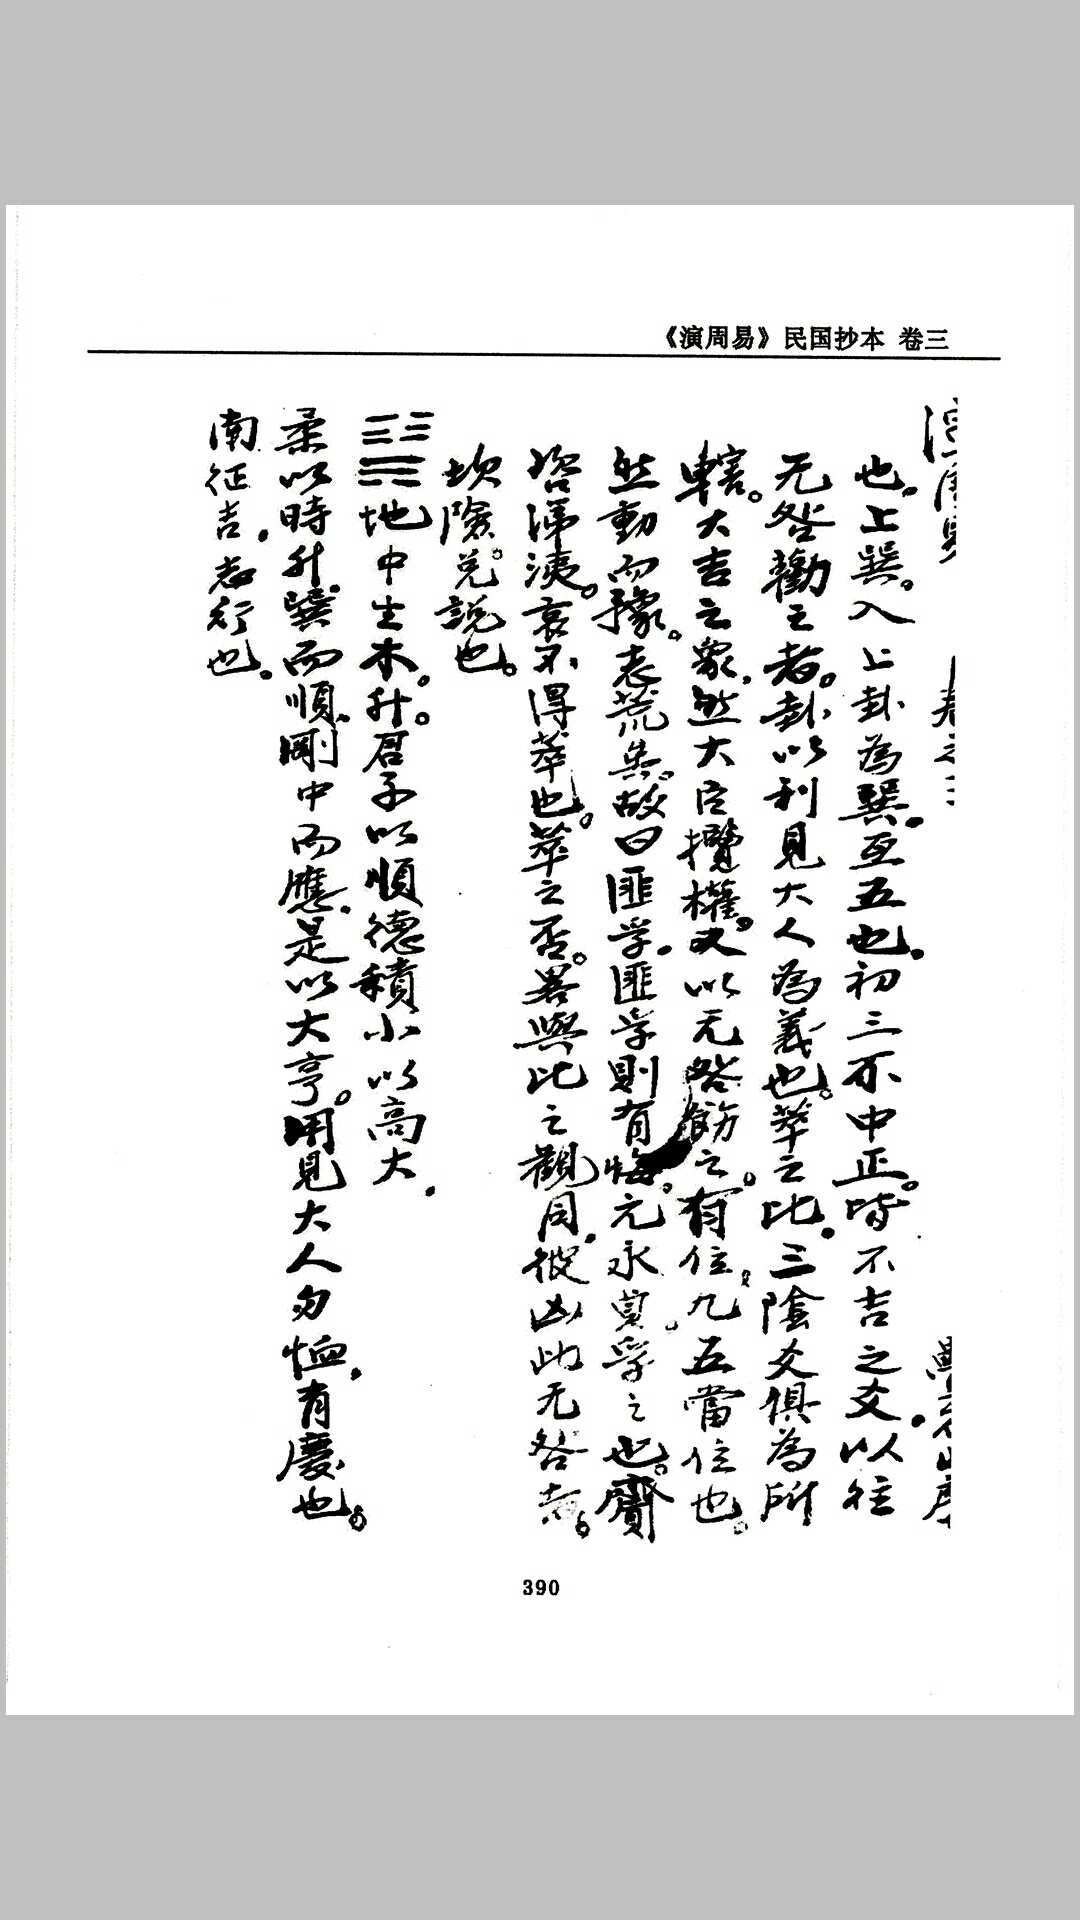 《演周易》民国抄本 卷三
演周易 卷之三
也。上巽。入上卦為巽。互五也。初三不中正。皆不吉之爻。以往
无咎勸之者。卦以利見大人為義也。萃之比。三陰爻俱為所
轄。大吉之象。然大臣攬權。又以无咎飭之。有位。九五當位也。
然動而豫。志荒矣。故曰匪孚。匪孚則有悔。元永貞孚之也。齎
咨涕洟。哀不得萃也。萃之否。畧與比之觀同。彼凶此无咎者。
坎險。兌說也。
䷭地中生木。升。君子以順德積小以高大。
柔以時升。巽而順。剛中而應。是以大亨。用見大人勿恤。有慶也。
南征吉。志行也。
390